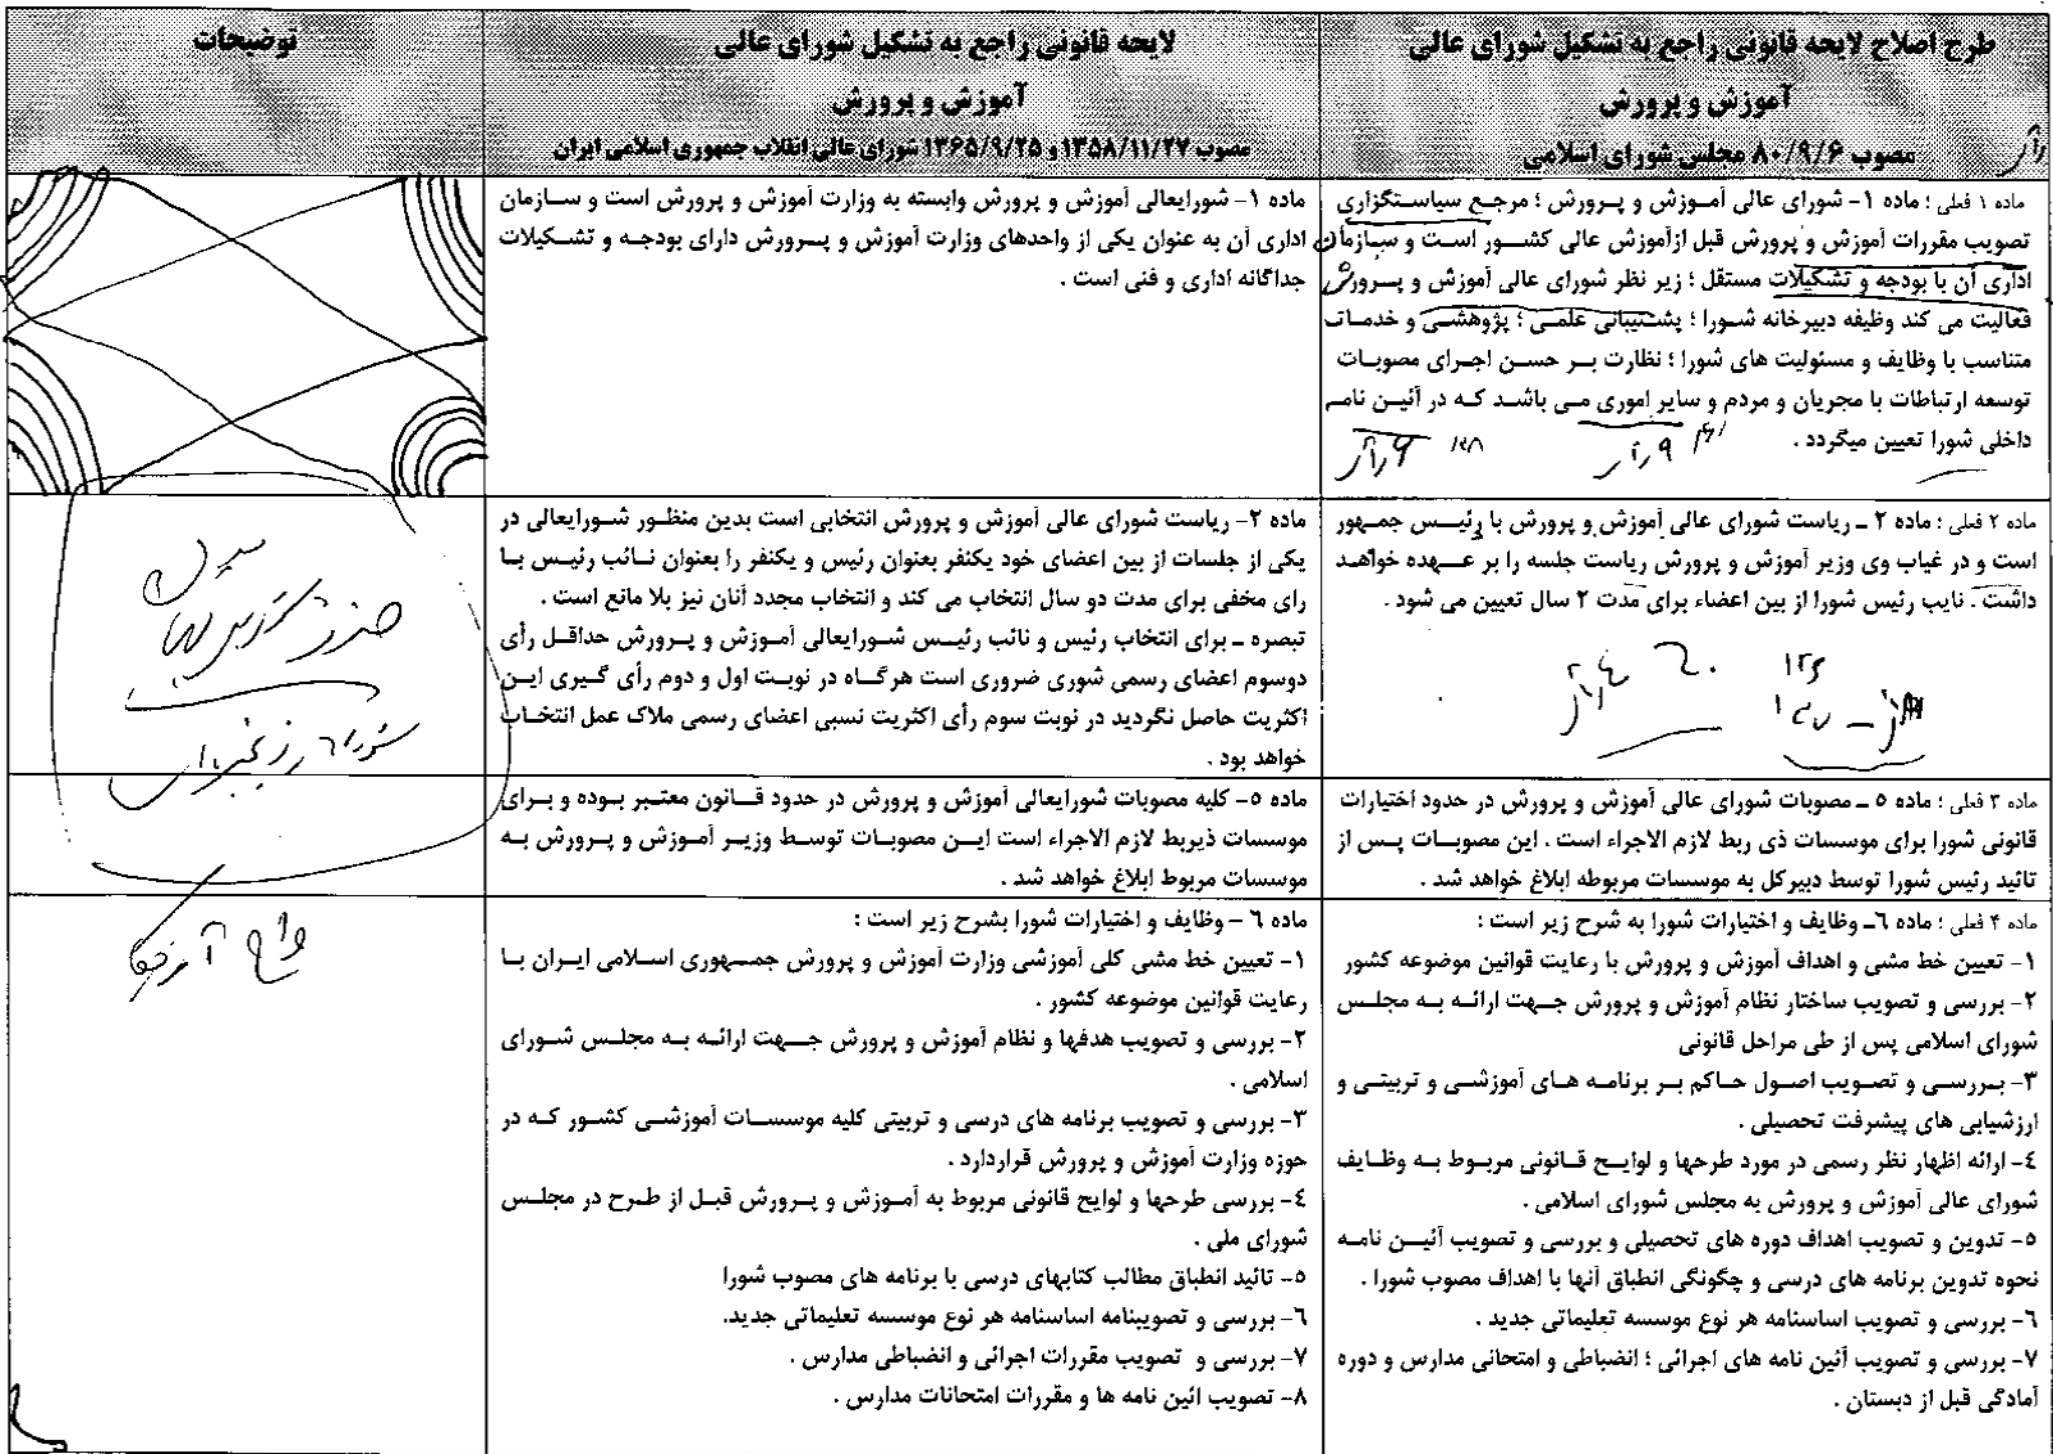 طرح اصلاح لایحه قانونی راجع به تشکیل شورای عالی
آموزش و پرورش
مصوب ۸۰/۹/۶ مجلس شورای اسلامی
لایحه قانونی راجع به تشکیل شورای عالی
آموزش و پرورش
مصوب ۱۳۵۸/۱۱/۲۷ و ۱۳۶۵/۹/۲۵ شورای عالی انقلاب جمهوری اسلامی ایران
توضیحات
ماده ۱ فعلی ؛ ماده ۱- شورای عالی آموزش و پرورش ؛ مرجع سیاستگزاری
تصویب مقررات آموزش و پرورش قبل ازآموزش عالی کشور است و سازمان
اداری آن با بودجه و تشکیلات مستقل ؛ زیر نظر شورای عالی آموزش و پرورش
فعالیت می کند وظیفه دبیرخانه شورا ؛ پشتیبانی علمی ؛ پژوهشی و خدمات
متناسب با وظایف و مسئولیت های شورا ؛ نظارت بر حسن اجرای مصوبات
توسعه ارتباطات با مجریان و مردم و سایر اموری می باشد که در آئین نامه
داخلی شورا تعیین میگردد .
ماده ۱- شورایعالی آموزش و پرورش وابسته به وزارت آموزش و پرورش است و سازمان
اداری آن به عنوان یکی از واحدهای وزارت آموزش و پرورش دارای بودجه و تشکیلات
جداگانه اداری و فنی است .
ماده ۲ فعلی ؛ ماده ۲ ـ ریاست شورای عالی آموزش و پرورش با رئیس جمهور
است و در غیاب وی وزیر آموزش و پرورش ریاست جلسه را بر عهده خواهد
داشت . نایب رئیس شورا از بین اعضاء برای مدت ۲ سال تعیین می شود .
ماده ۲- ریاست شورای عالی آموزش و پرورش انتخابی است بدین منظور شورایعالی در
یکی از جلسات از بین اعضای خود یکنفر بعنوان رئیس و یکنفر را بعنوان نائب رئیس با
رای مخفی برای مدت دو سال انتخاب می کند و انتخاب مجدد آنان نیز بلا مانع است .
تبصره ـ برای انتخاب رئیس و نائب رئیس شورایعالی آموزش و پرورش حداقل رأی
دوسوم اعضای رسمی شوری ضروری است هرگاه در نوبت اول و دوم رأی گیری این
اکثریت حاصل نگردید در نوبت سوم رأی اکثریت نسبی اعضای رسمی ملاک عمل انتخاب
خواهد بود .
ماده ۳ فعلی ؛ ماده ٥ ـ مصوبات شورای عالی آموزش و پرورش در حدود اختیارات
قانونی شورا برای موسسات ذی ربط لازم الاجراء است . این مصوبات پس از
تائید رئیس شورا توسط دبیرکل به موسسات مربوطه ابلاغ خواهد شد .
ماده ٥- کلیه مصوبات شورایعالی آموزش و پرورش در حدود قانون معتبر بوده و برای
موسسات ذیربط لازم الاجراء است این مصوبات توسط وزیر آموزش و پرورش به
موسسات مربوط ابلاغ خواهد شد .
ماده ۴ فعلی ؛ ماده ٦ـ وظایف و اختیارات شورا به شرح زیر است :
۱- تعیین خط مشی و اهداف آموزش و پرورش با رعایت قوانین موضوعه کشور
۲- بررسی و تصویب ساختار نظام آموزش و پرورش جهت ارائه به مجلس
شورای اسلامی پس از طی مراحل قانونی
۳- بررسی و تصویب اصول حاکم بر برنامه های آموزشی و تربیتی و
ارزشیابی های پیشرفت تحصیلی .
٤- ارائه اظهار نظر رسمی در مورد طرحها و لوایح قانونی مربوط به وظایف
شورای عالی آموزش و پرورش به مجلس شورای اسلامی .
٥- تدوین و تصویب اهداف دوره های تحصیلی و بررسی و تصویب آئین نامه
نحوه تدوین برنامه های درسی و چگونگی انطباق آنها با اهداف مصوب شورا .
٦- بررسی و تصویب اساسنامه هر نوع موسسه تعلیماتی جدید .
۷- بررسی و تصویب آئین نامه های اجرائی ؛ انضباطی و امتحانی مدارس و دوره
آمادگی قبل از دبستان .
ماده ٦ – وظایف و اختیارات شورا بشرح زیر است :
۱- تعیین خط مشی کلی آموزشی وزارت آموزش و پرورش جمهوری اسلامی ایران با
رعایت قوانین موضوعه کشور .
۲- بررسی و تصویب هدفها و نظام آموزش و پرورش جهت ارائه به مجلس شورای
اسلامی .
۳- بررسی و تصویب برنامه های درسی و تربیتی کلیه موسسات آموزشی کشور که در
حوزه وزارت آموزش و پرورش قراردارد .
٤- بررسی طرحها و لوایح قانونی مربوط به آموزش و پرورش قبل از طرح در مجلس
شورای ملی .
٥- تائید انطباق مطالب کتابهای درسی با برنامه های مصوب شورا
٦- بررسی و تصویبنامه اساسنامه هر نوع موسسه تعلیماتی جدید.
۷- بررسی و تصویب مقررات اجرائی و انضباطی مدارس .
۸- تصویب ائین نامه ها و مقررات امتحانات مدارس .